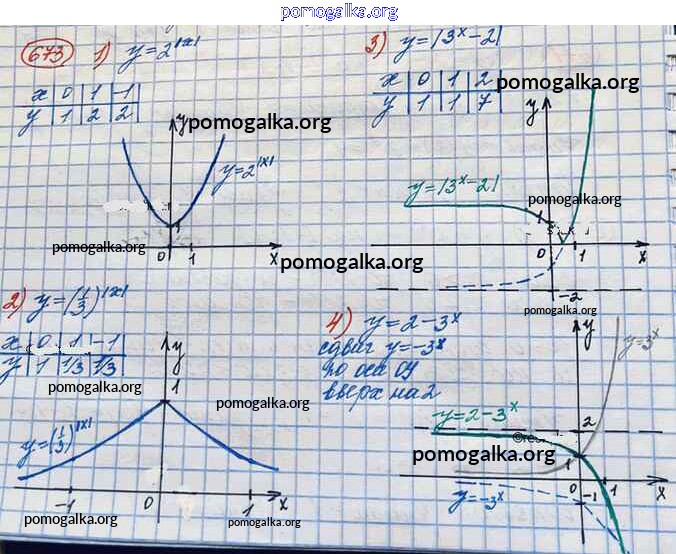 pomogalka.org
673 1) y=2^|x|
x 0 1 -1
y 1 2 2
pomogalka.org
y
y=2^|x|
1
pomogalka.org
0 1 x
3) y=|3^x-2|
x 0 1 2
y 1 1 7
pomogalka.org
y
y=|3^x-2|
pomogalka.org
1
0 1 x
pomogalka.org
-2
pomogalka.org
2) y=(1/3)^|x|
x 0 1 -1
y 1 1/3 1/3
pomogalka.org
y
1
pomogalka.org
y=(1/3)^|x|
-1 0 1 x
pomogalka.org
pomogalka.org
4) y=2-3^x
сдвиг y=-3^x
по оси Oy
вверх на 2
y
y=3^x
y=2-3^x
2
pomogalka.org
1
0 1 x
-1
y=-3^x
pomogalka.org